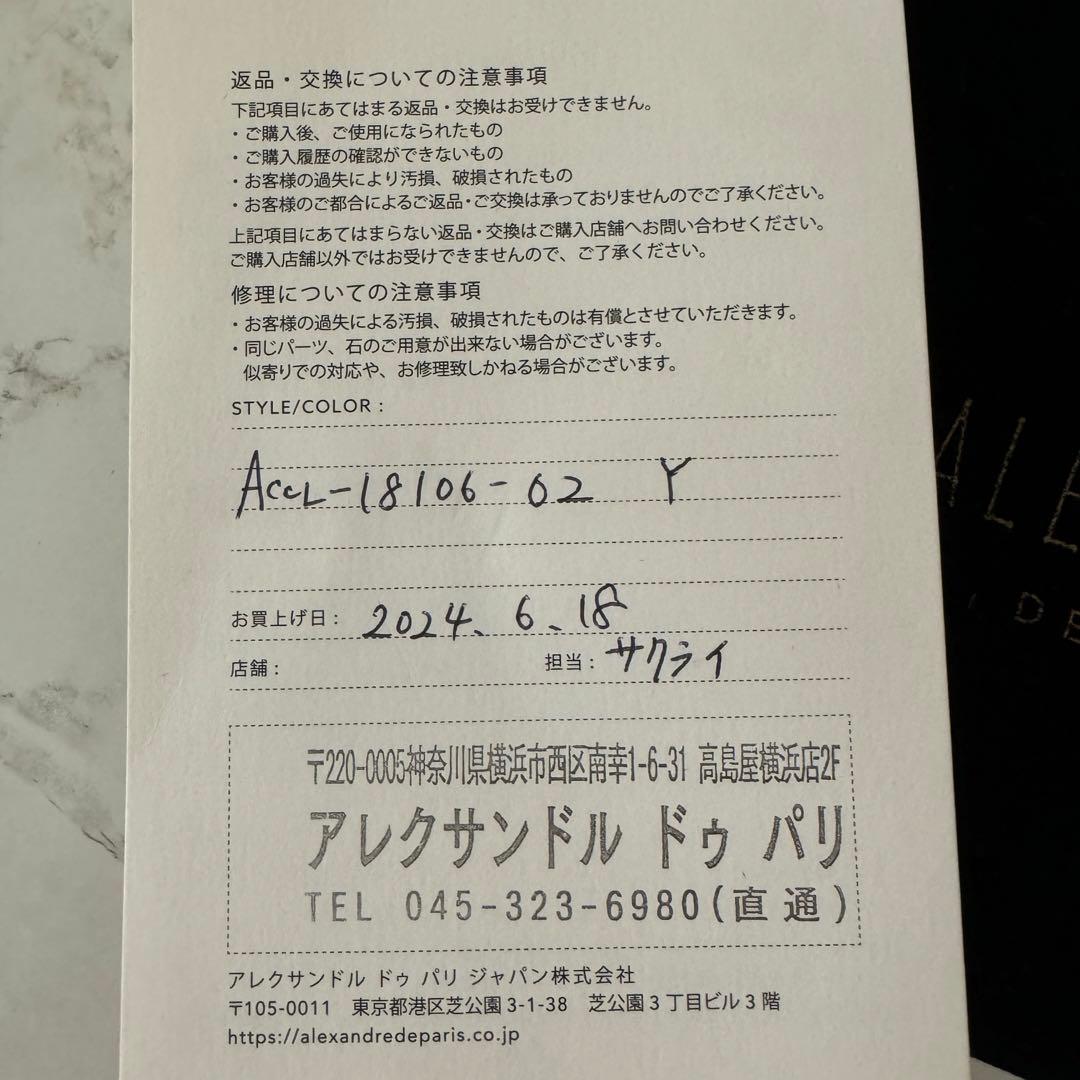 返品・交換についての注意事項
下記項目にあてはまる返品・交換はお受けできません。
・ご購入後、ご使用になられたもの
・ご購入履歴の確認ができないもの
・お客様の過失により汚損、破損されたもの
・お客様のご都合によるご返品・ご交換は承っておりませんのでご了承ください。
上記項目にあてはまらない返品・交換はご購入店舗へお問い合わせください。
ご購入店舗以外ではお受けできませんので、ご了承ください。
修理についての注意事項
・お客様の過失による汚損、破損されたものは有償とさせていただきます。
・同じパーツ、石のご用意が出来ない場合がございます。
似寄りでの対応や、お修理致しかねる場合がございます。
STYLE/COLOR :
ACCL-18106-02 Y
お買上げ日: 2024、6、18
店舗: 担当: サクライ
〒220-0005神奈川県横浜市西区南幸1-6-31 高島屋横浜店2F
アレクサンドル ドゥ パリ
TEL 045-323-6980(直通)
アレクサンドル ドゥ パリ ジャパン株式会社
〒105-0011 東京都港区芝公園3-1-38 芝公園3丁目ビル3階
https://alexandredeparis.co.jp
ALE
DE